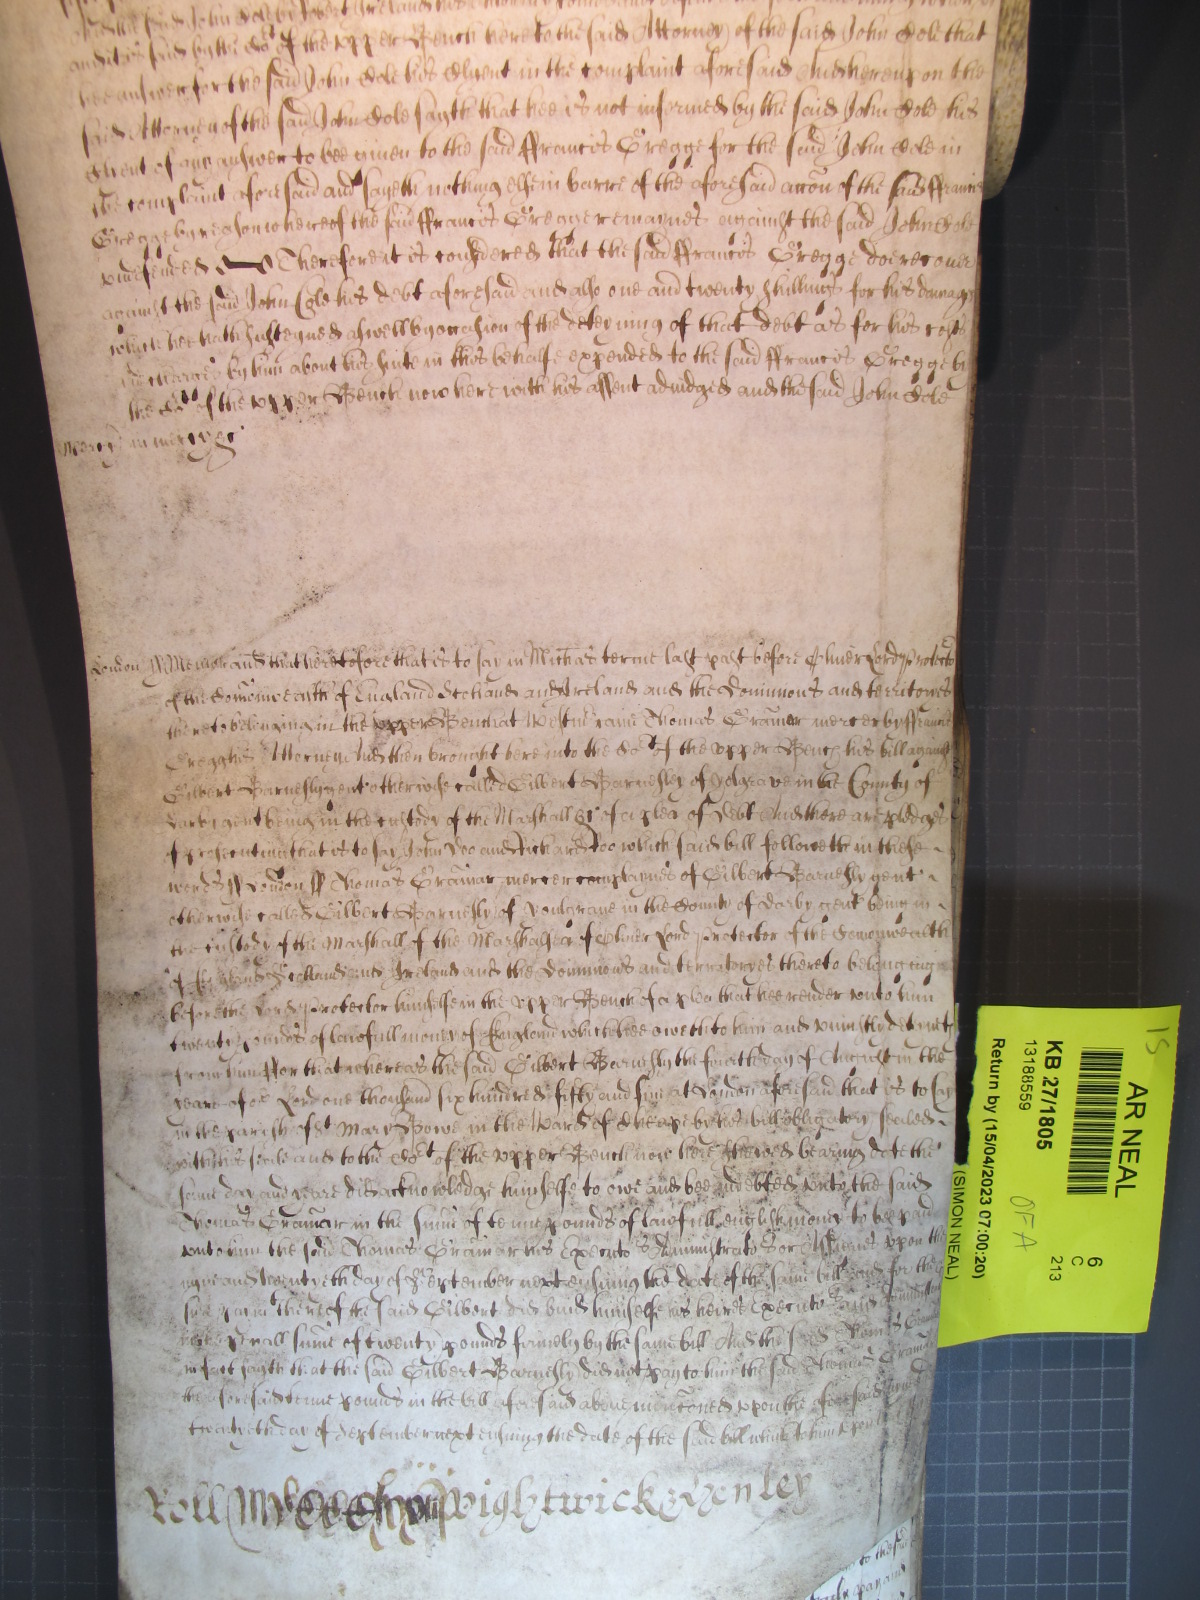 and it is said by the Co:t of the upper Bench here to the said Attorney of the said John Cole that
hee answer for the said John Cole his Clyent in the complaint aforesaid And hereupon the
said Attorney of the said John Cole sayth that hee is not informed by the said John Cole his
Clyent of any answer to bee given to the said ffrancis Gregge for the said John Cole in
the complaint aforesaid and sayeth nothing else in barre of the aforesaid accon of the said ffrancis
Gregge by reason whereof the said ffrancis Gregge remaynes against the said John Cole
undefended Therefore it is considered that the said ffrancis Gregge doe recover
against the said John Cole his debt aforesaid and also one and twenty shillings for his damages
which hee hath susteyned aswell by occasion of the deteyning of that debt as for his costs
and charges by him about his suite in this behalfe expended to the said ffrancis Gregge by
the Co:t of the upper Bench now here with his assent adiudged and the said John Cole
Mercy in mercy &c
London ss Memorand that heretofore that is to say in Michas terme last past before Oliver Lord Protector
of the Comonwealth of England Scotland and Ireland and the Dominions and territories
thereto belonging in the upper Bench at Westmr came Thomas Cramar mercer by ffrancis
Gregg his Attorney And then brought here into the Cot of the upper Bench his bill against
Gilbert Barnesly gent otherwise called Gilbert Barnesley of Yolgrave in the County of
Darby gent being in the custody of the Marshall &c of a plea of Debt And there are pledges
of prosecuting that is to say John Doo and Richard Roo which said bill followeth in these
words ss London ss Thomas Cramar mercer complaynes of Gilbert Barnesly gent
otherwise called Gilbert Barnesly of Youlgrave in the County of Darby gent being in
the custody of the Marshall of the Marshalsea of Oliver Lord Protector of the Comonwealth
of England Scotland and Ireland and the Dominions and territoryes thereto belonging
before the Lord Protector himselfe in the upper Bench of a plea that hee render unto him
twenty pounds of lawfull money of England which hee oweth to him and uniustly deteynes
from him ffor that whereas the said Gilbert Barnesly the fourth day of August in the
yeare of or Lord one thousand six hundred fifty and six at London aforesaid that is to say
in the parish of St Mary Bowe in the Ward of Cheape by his bill obligatory sealed
with his seale and to the Cot of the upper Bench now here shewed bearing date the
same day and yeare did acknowledge himselfe to owe and bee indebted unto the said
Thomas Cramar in the sume of tenne pounds of lawfull english money to bee paid
unto him the said Thomas Cramar his Executors Administrators or Assignes upon the
nyne and twentyeth day of September next ensuing the date of the same bill and for the
said Gilbert did bind himselfe his heires Executors and
sume of twenty pounds firmely by the same bill And the said Thomas Cramar
in fact sayth that the said Gilbert Barnesly did not pay to him the said Thomas Cramar
the aforesaid tenne pounds in the bill aforesaid above menconed upon the aforesaid nyne and
twentyeth day of September next ensuing the date of the said bill
Roll Wightwick & Henley
15
AR NEAL
6
C
213
KB 27/1805
13188559
OFA
Return by (15/04/2023 07:00:20)
(SIMON NEAL)